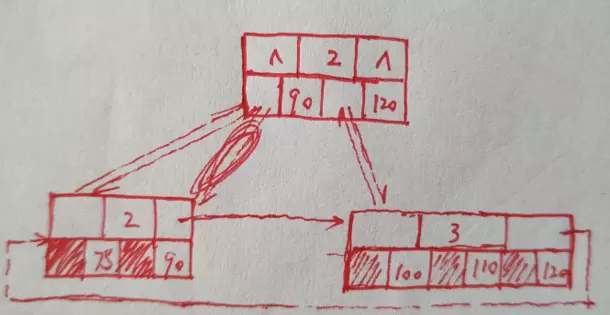 ∧ 2 ∧
90 120
2
78 90
3
100 110 120